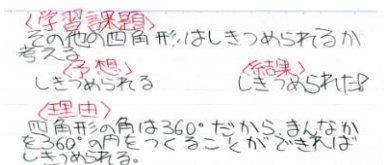 〈学習課題〉
その他の四角形はしきつめられるか
考える
〈予想〉 〈結果〉
しきつめられる しきつめられた!
〈理由〉
四角形の角は360°だから、まんなか
を360°の円をつくることができれば
しきつめられる。